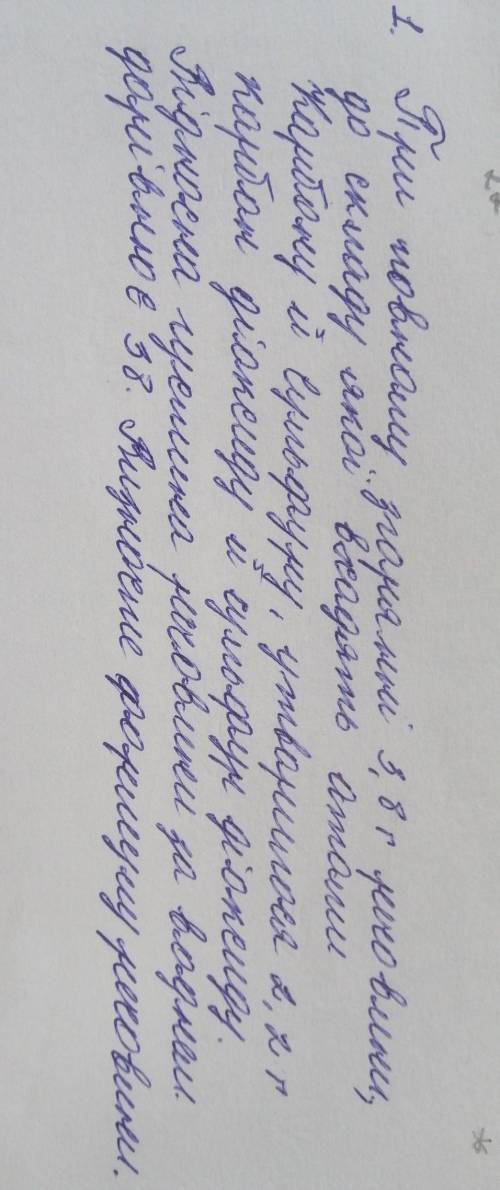 1. При повному згорянні 3,8 г речовини,
до складу якої входять атоми
Карбону й Сульфуру, утворилося 2,2 г
карбон діоксиду й сульфур діоксиду.
Відносна густина речовини за воднем
дорівнює 38. Визначте формулу речовини.